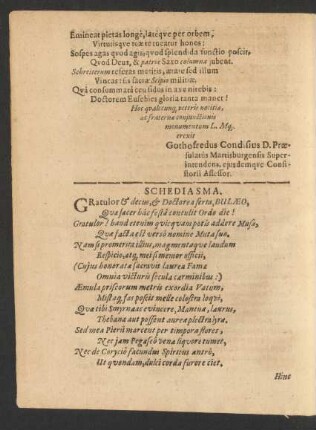 Emineat pietas longè, latéque per orbem,
Virtutisque tuæ tueatur honos:
Sospes agas quod agis, quod splendida functio poscit,
Quod Deus, & patriæ Saxo columna jubent.
referas meritis, sed illum
Vincat: sis factis Scipio militiæ.
Quâ consummatâ ceu sidus in axe nitebis:
Doctorem Eusebies gloria tanta manet!
Hoc qualecunq; veteris notitiæ,
ut fraternæ conjunctionis
monumentum L. Mq;
Gothofredus Condisius D. Præ-
sulatus Martisburgensis Super-
intendens, ejusdemque Consi-
storii Assessor.
SCHEDIASMA.
GRatulor & decus, & Doctorea serta, DULÆO,
Quæ sacer hâc festâ contulit Ordo die!
Gratulor? haud etenim quicquam potis addere Musa,
Quæ facta est vero nomine Muta sue,
Nam si promerita illius, magnentaque laudum
Respicio, atq; mei si memor officii,
(Cujus honoratæ sacravit laurea Famæ
Omnia victuris secula carminibus:)
Æmula priscorum metris exordia Vatum,
Mistaq; sat poscit melle colostra loqui,
Quæ tibi Smyrnææ revincere, Manena, lauros,
Thebana aut possent aurea plectra lyra.
Sed mea Plerii marcent per tempora flores,
Nec jam Pegaseo vena liquore tumet,
Nec de Corycio fatundus Spiritus antro,
Ut quondam, dulci corda furore ciet.
Hinc